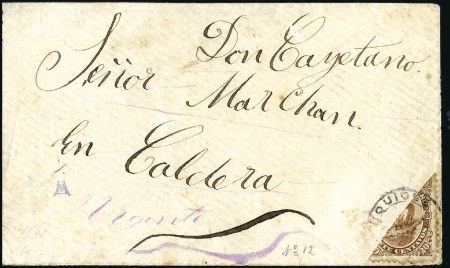 Don Cayetano.
Señor Marchan.
En Caldera
Urgente
No 12